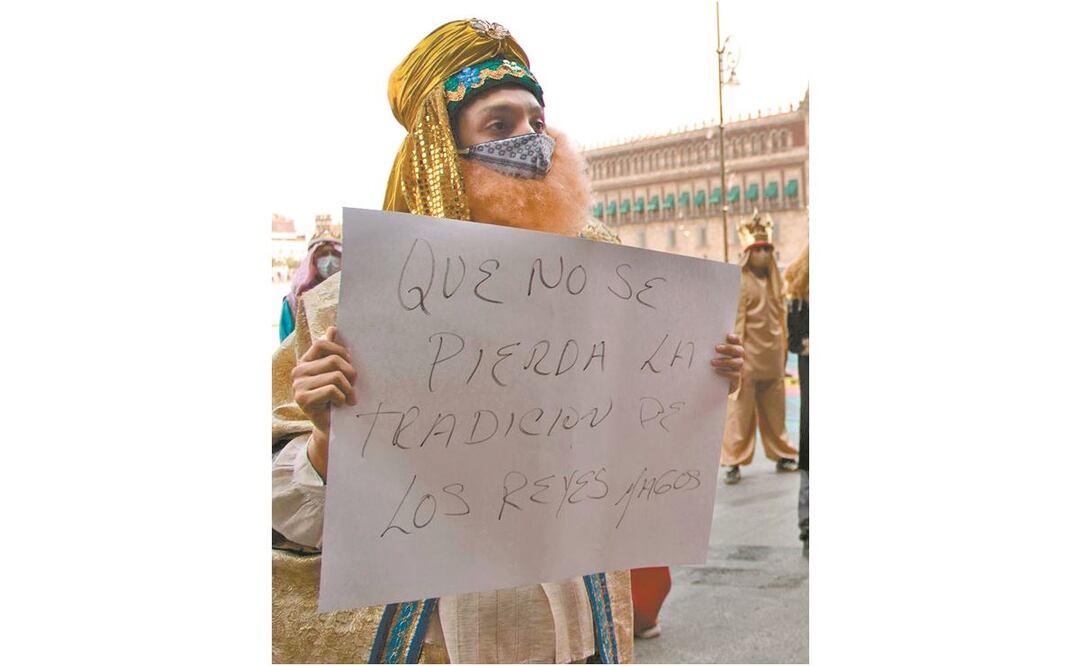 QUE NO SE
PIERDA LA
TRADICION DE
LOS REYES MAGOS